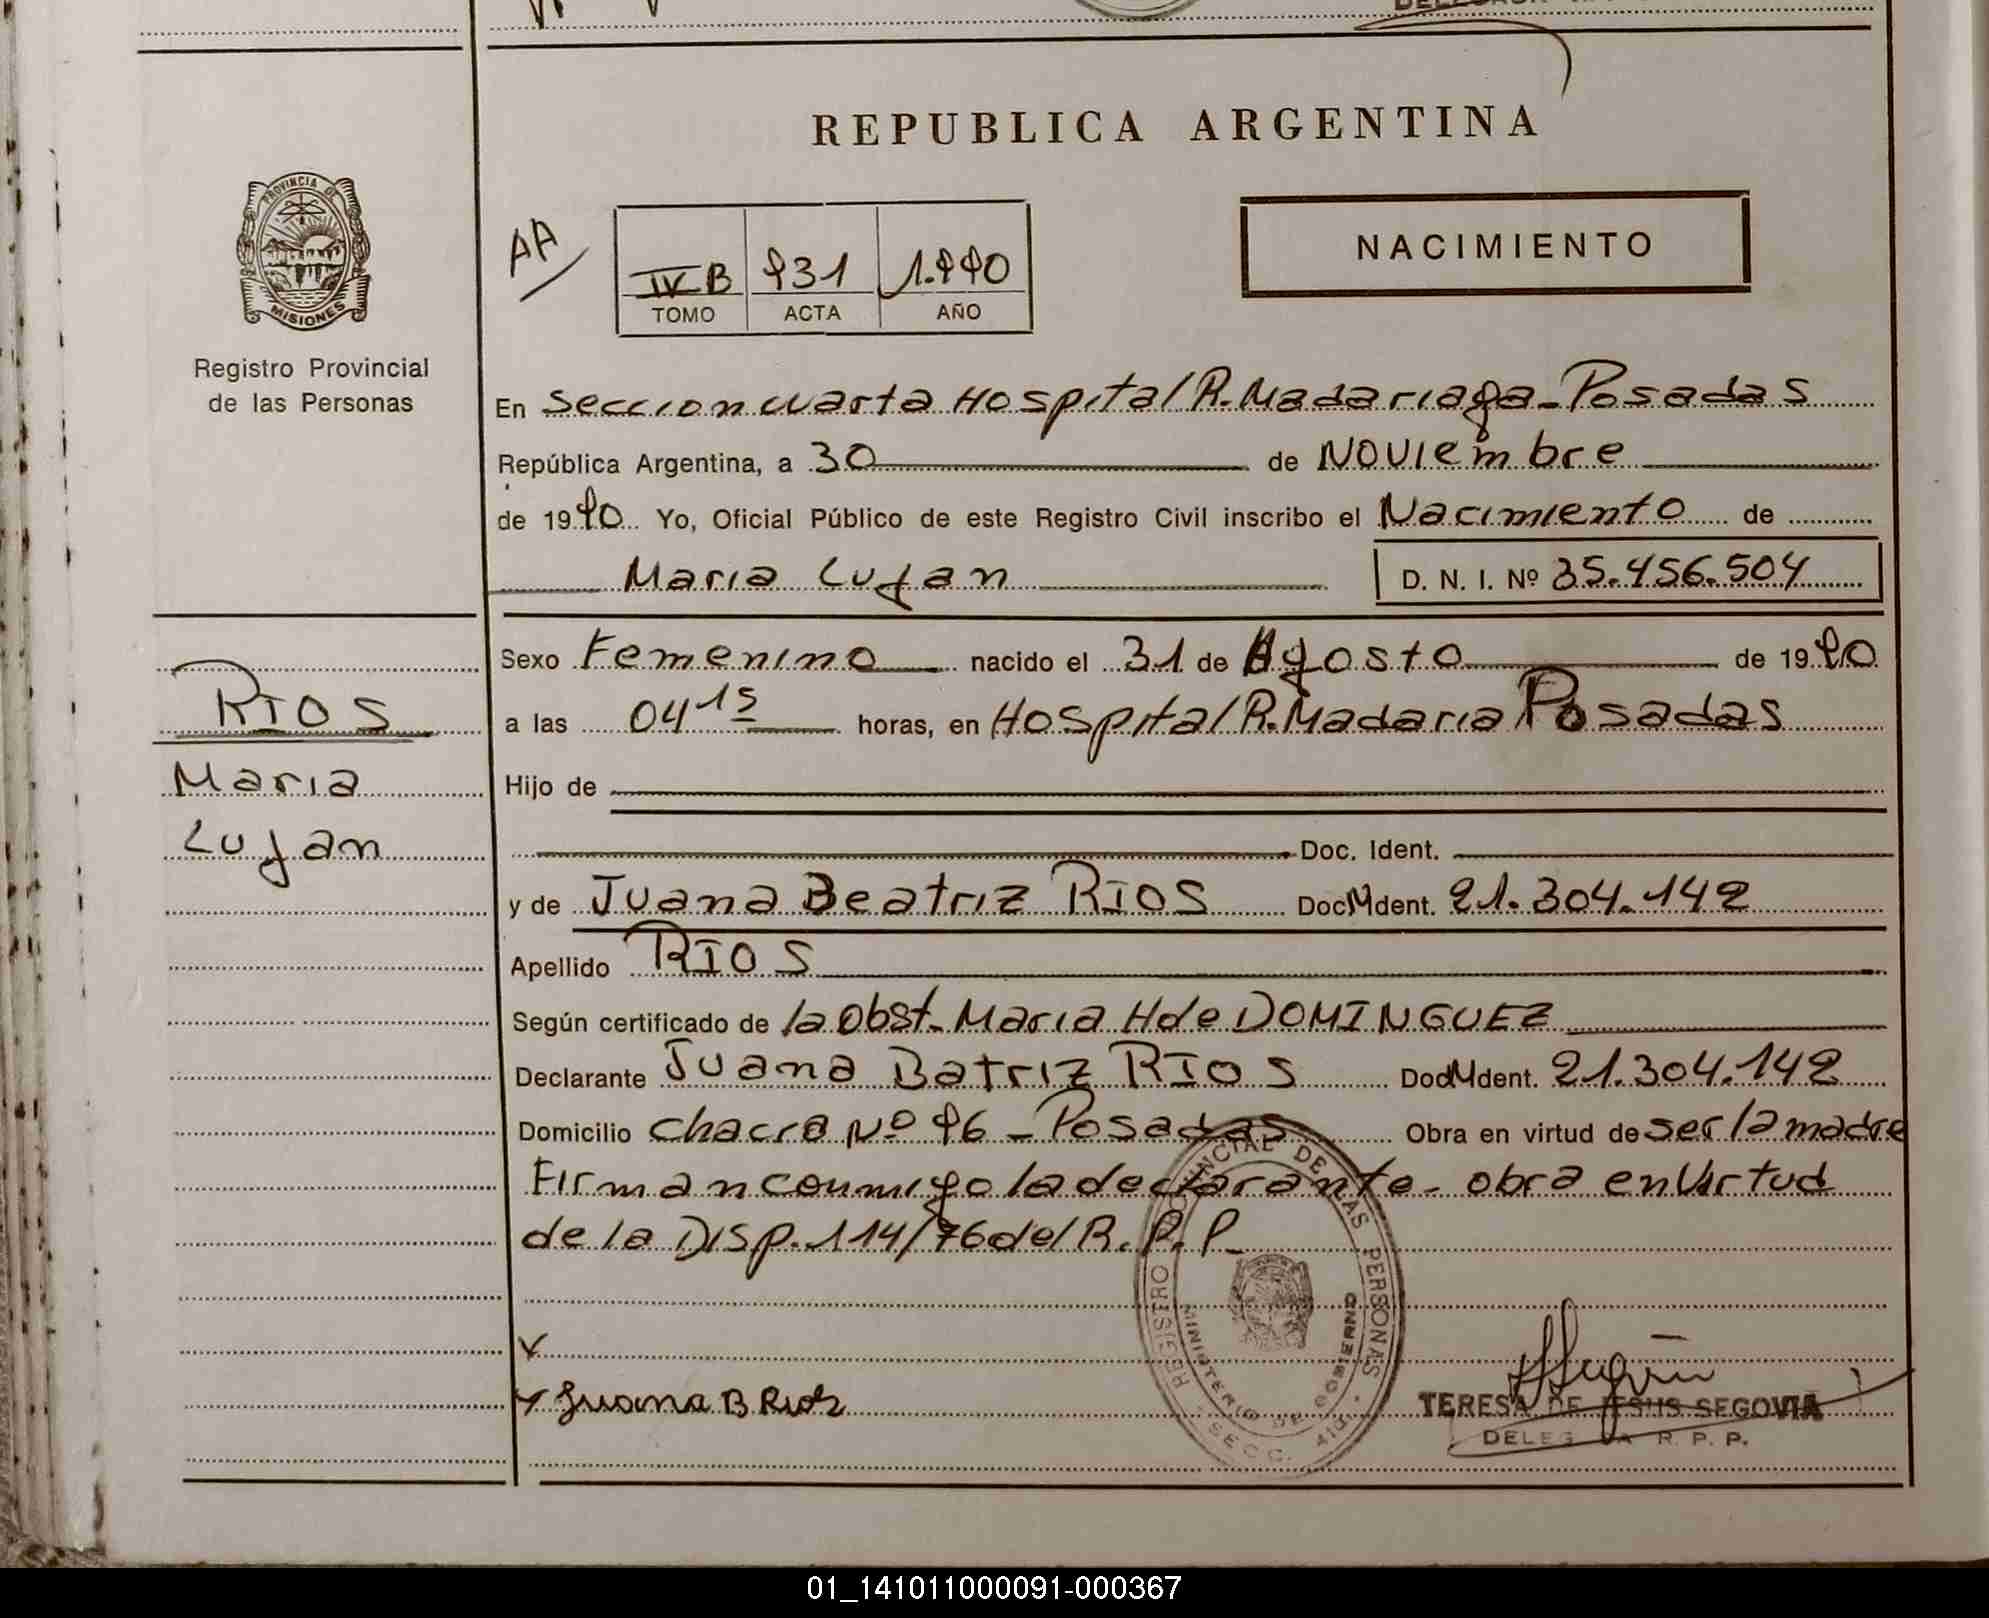 REPUBLICA ARGENTINA
PROVINCIA DE
MISIONES
Registro Provincial
de las Personas
AA
IV B 931 1.990
TOMO ACTA AÑO
NACIMIENTO
En Seccion cuarta Hospital R. Madariaga - Posadas
República Argentina, a 30 de Noviembre
de 1990 Yo, Oficial Público de este Registro Civil inscribo el Nacimiento de
Maria Lujan D. N. I. Nº 35.456.504
Sexo Femenino nacido el 31 de Agosto de 1990
RIOS
a las 04 15 horas, en Hospital R. Madaria Posadas
Maria
Hijo de
Lujan
Doc. Ident.
y de Juana Beatriz RIOS Doc. Ident. 21.304.142
Apellido RIOS
Según certificado de la Obst. Maria H de DOMINGUEZ
Declarante Juana Batriz RIOS Doc. Ident. 21.304.142
Domicilio chacra Nº 96 - Posadas Obra en virtud de ser la madre
Firman conmigo la declarante - obra en Virtud
de la Disp. 114/76 del R. P. P.
REGISTRO PROVINCIAL DE LAS PERSONAS
MINISTERIO DE GOBIERNO
SECC. 4ta
Juana B Rios
TERESA DE JESUS SEGOVIA
DELEGADA R. P. P.
01_141011000091-000367